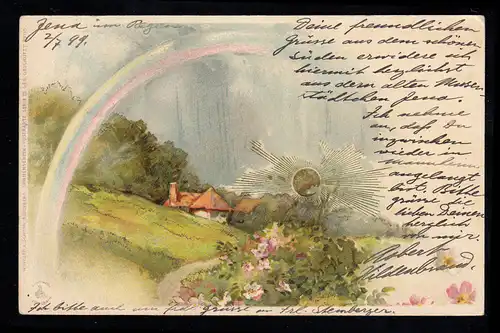 Jena im Regen
2/7 99.
Deine freundlichen
Grüsse aus dem schönen
Süden erwidere ich
hiermit herzlichst
aus dem alten Musen-
städtchen Jena.
Ich nehme
an, daß Du
inzwischen
wieder in
angelangt
bist. Bitte
grüsse die
lieben Deinen
herzlich
von mir.
Robert
Hildenbrand.
Ich bitte auch um Grüsse an Frl. Stemberger.